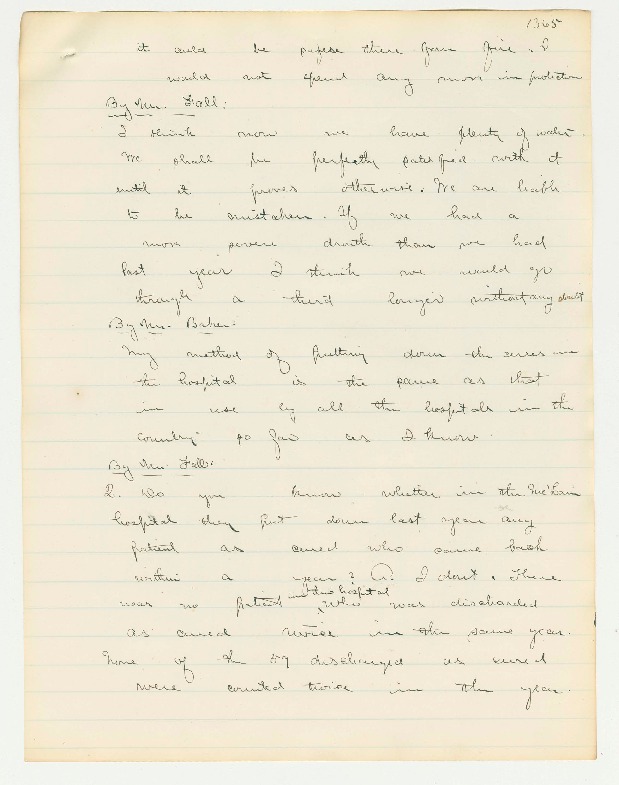 1365
it could be safer there from fire. I
would not spend any more in protection
By Mr. Fall:
I think now we have plenty of water.
We shall be perfectly satisfied with it
until it proves otherwise. We are liable
to be mistaken. If we had a
more severe drouth than we had
last year I think we would go
through a third longer without any doubt
By Mr. Baker:
My method of putting down the cures in
the hospital is the same as that
in use by all the hospitals in the
country so far as I know.
By Mr. Fall:
Q. Do you know whether in the McLain
hospital they put down last year any
patient as cured who came back
within a year? A. I don't. There
was no patient in this hospital who was discharded
as cured twice in the same year.
None of the 59 discharged as cured
were counted twice in the year.